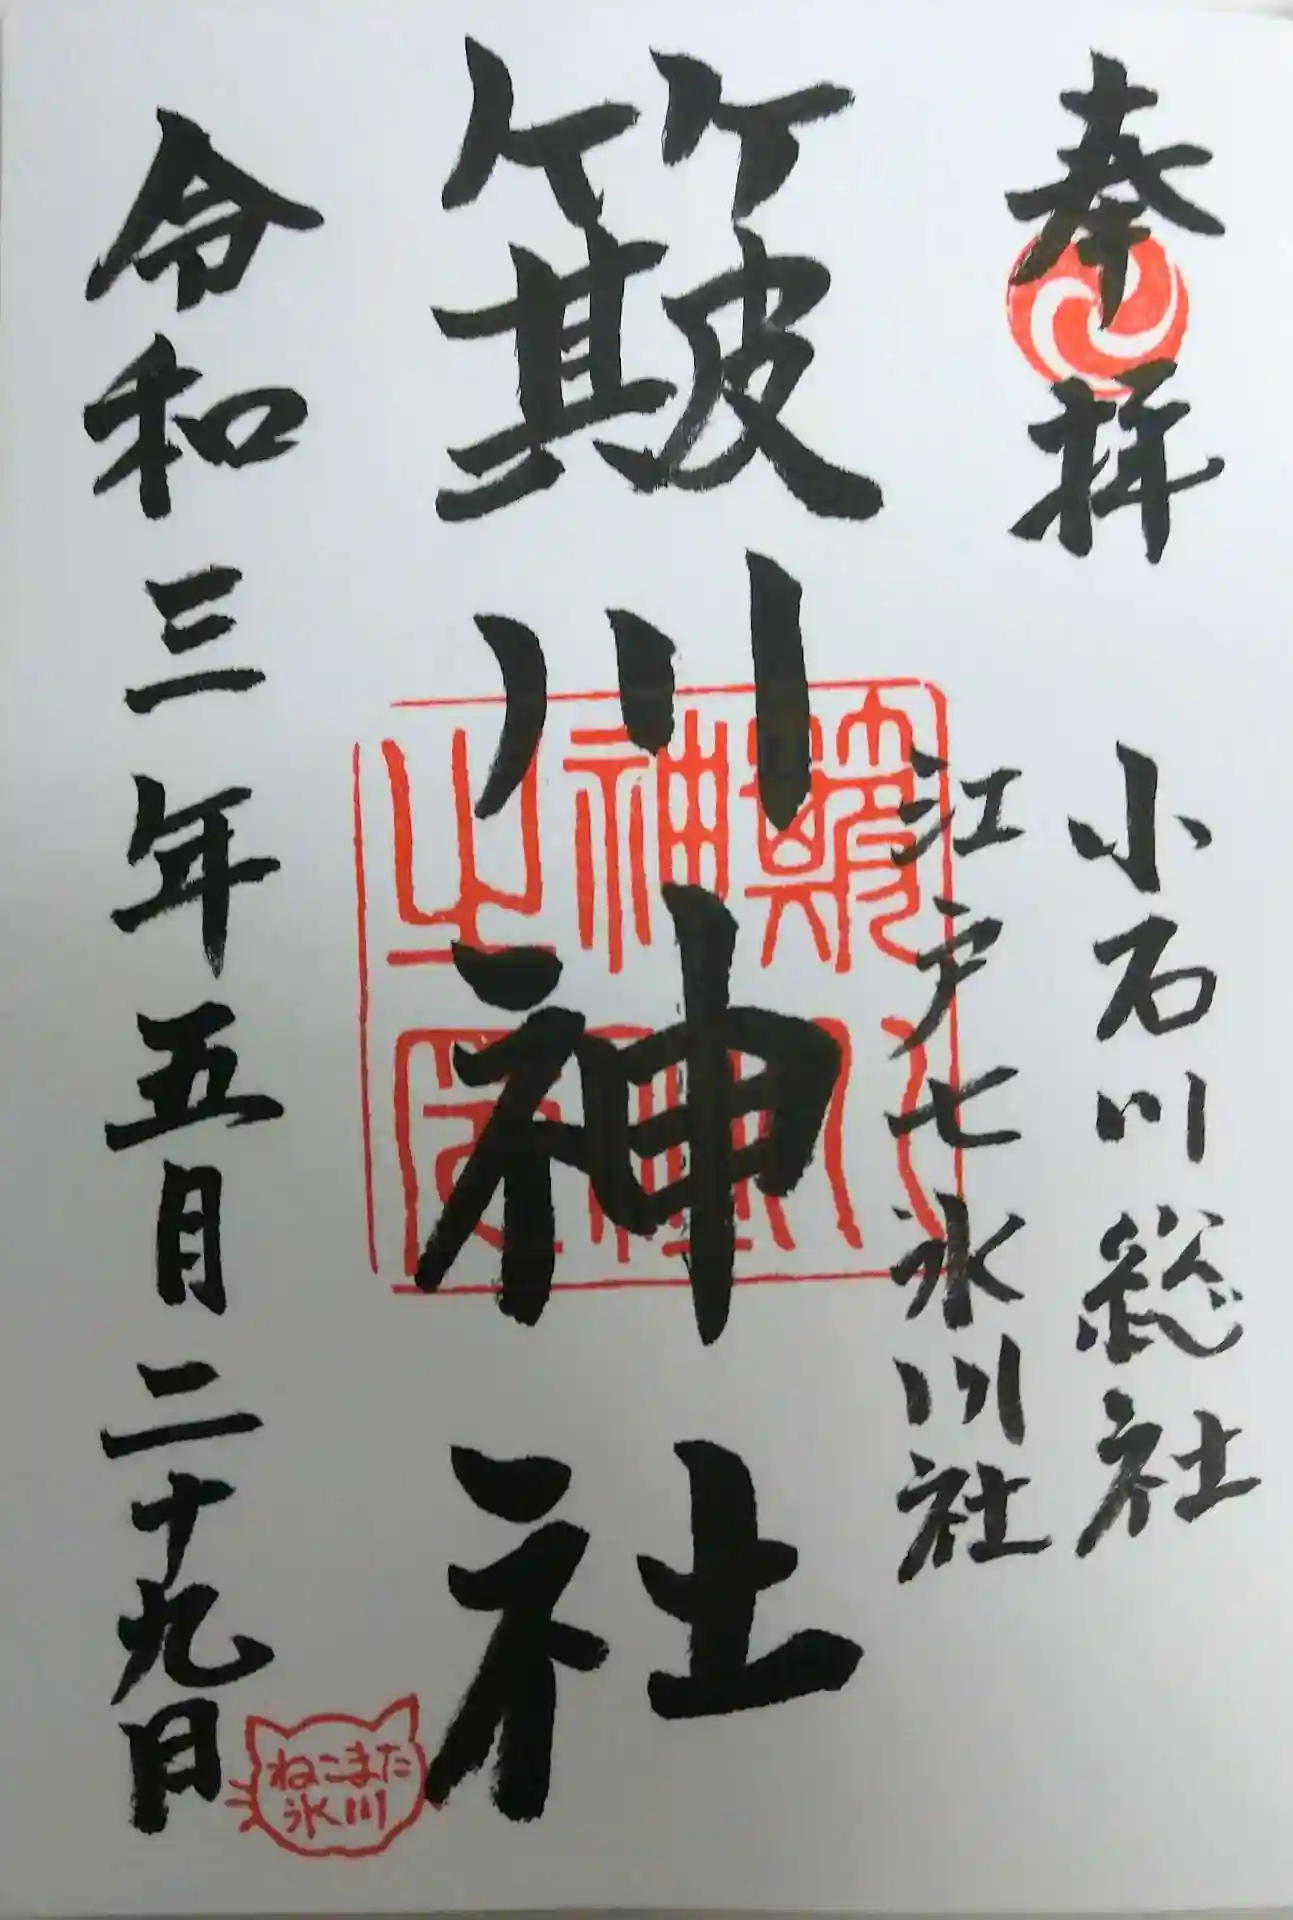 奉拝
小石川総社
江戸七氷川社
簸川神社
簸川神社之印
令和三年五月二十九日
ねこまた
氷川